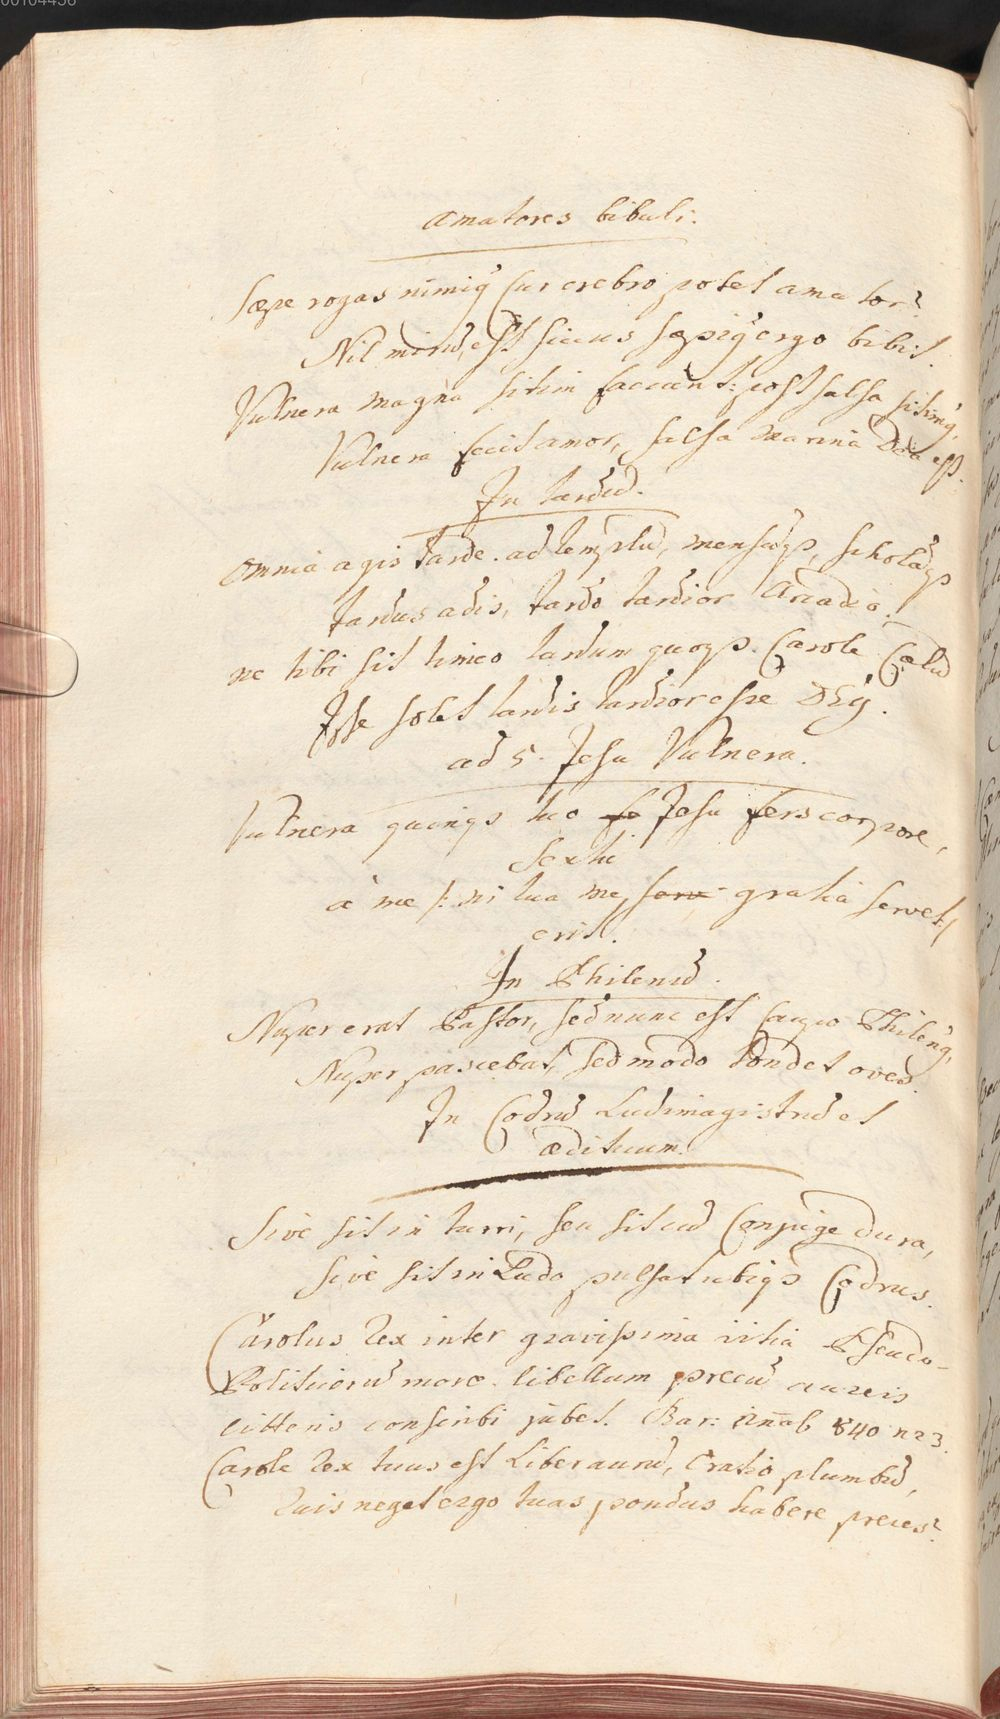 00104456
Amatores bibuli.
Sæpe rogas nimiq̃ Cur crebro potet amator?
Nil mirũ, est siccus sæpiq̃ ergo bibit.
Vulnera magna sitim faciunt: post salsa sitimq̃,
Vulnera facit amor, salsa marina Dea est.
In tardũ.
Omnia agis tarde. ad templũ, mensãqs, scholãqs
Tardus adis, tardo tardior Arcadio.
ne tibi sit timeo tardum quoqs. Carole Cælũ
Esse solet tardis tardior esse DEq̃.
ad 5. Jesu Vulnera.
Vulnera quinqs tuo fe Jesu fers corpore,
Sextũ
à me /: ni tua me, serv gratia servet,/
erit.
In Philenũ.
Nuper erat Pastor, sed nunc est caupo Philenq̃,
Nuper pascebat, sed modo tondet oves.
In Codrũ Ludimagistrũ et
ædituum.
Sive sit in turri, seu sit cũ Conjuge dura,
sive sit in Ludo pulsat ubiqs Codrus.
Carolus Rex inter gravissima vitia Pseudo-
Politicorũ more libellum precũ aureis
litteris conscribi jubet. Bar: Annal 840 n 23.
Carole Rex tuus est Liber aurũ, Oratio plumbũ,
Quis neget ergo tuas pondus habere preces?